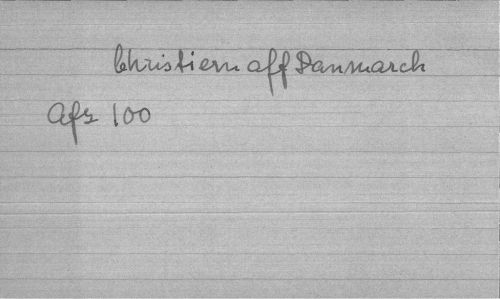 Christiern aff Danmarck
Afz 100